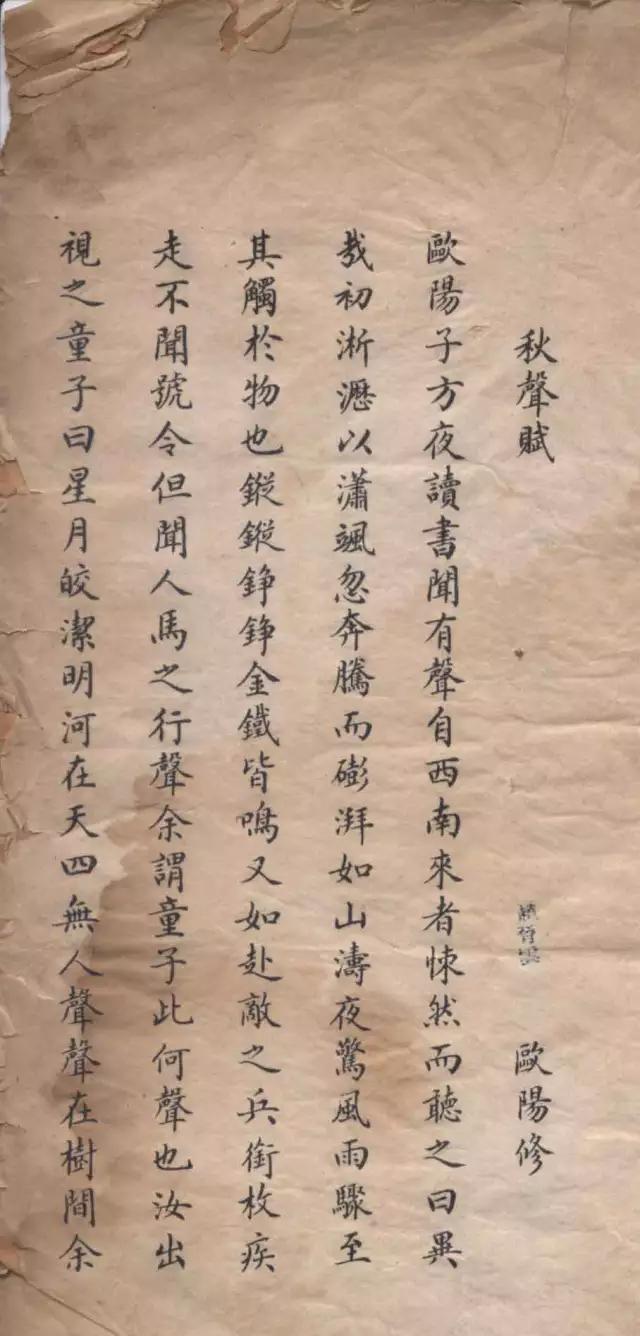 秋聲賦
歐陽修
歐陽子方夜讀書聞有聲自西南來者悚然而聽之曰異
哉初淅瀝以瀟颯忽奔騰而湃如山濤夜驚風雨驟至
其觸於物也鏦鏦錚錚金鐵皆鳴又如赴敵之兵銜枚疾
走不聞號令但聞人馬之行聲余謂童子此何聲也汝出
視之童子曰星月皎潔明河在天四無人聲聲在樹間余